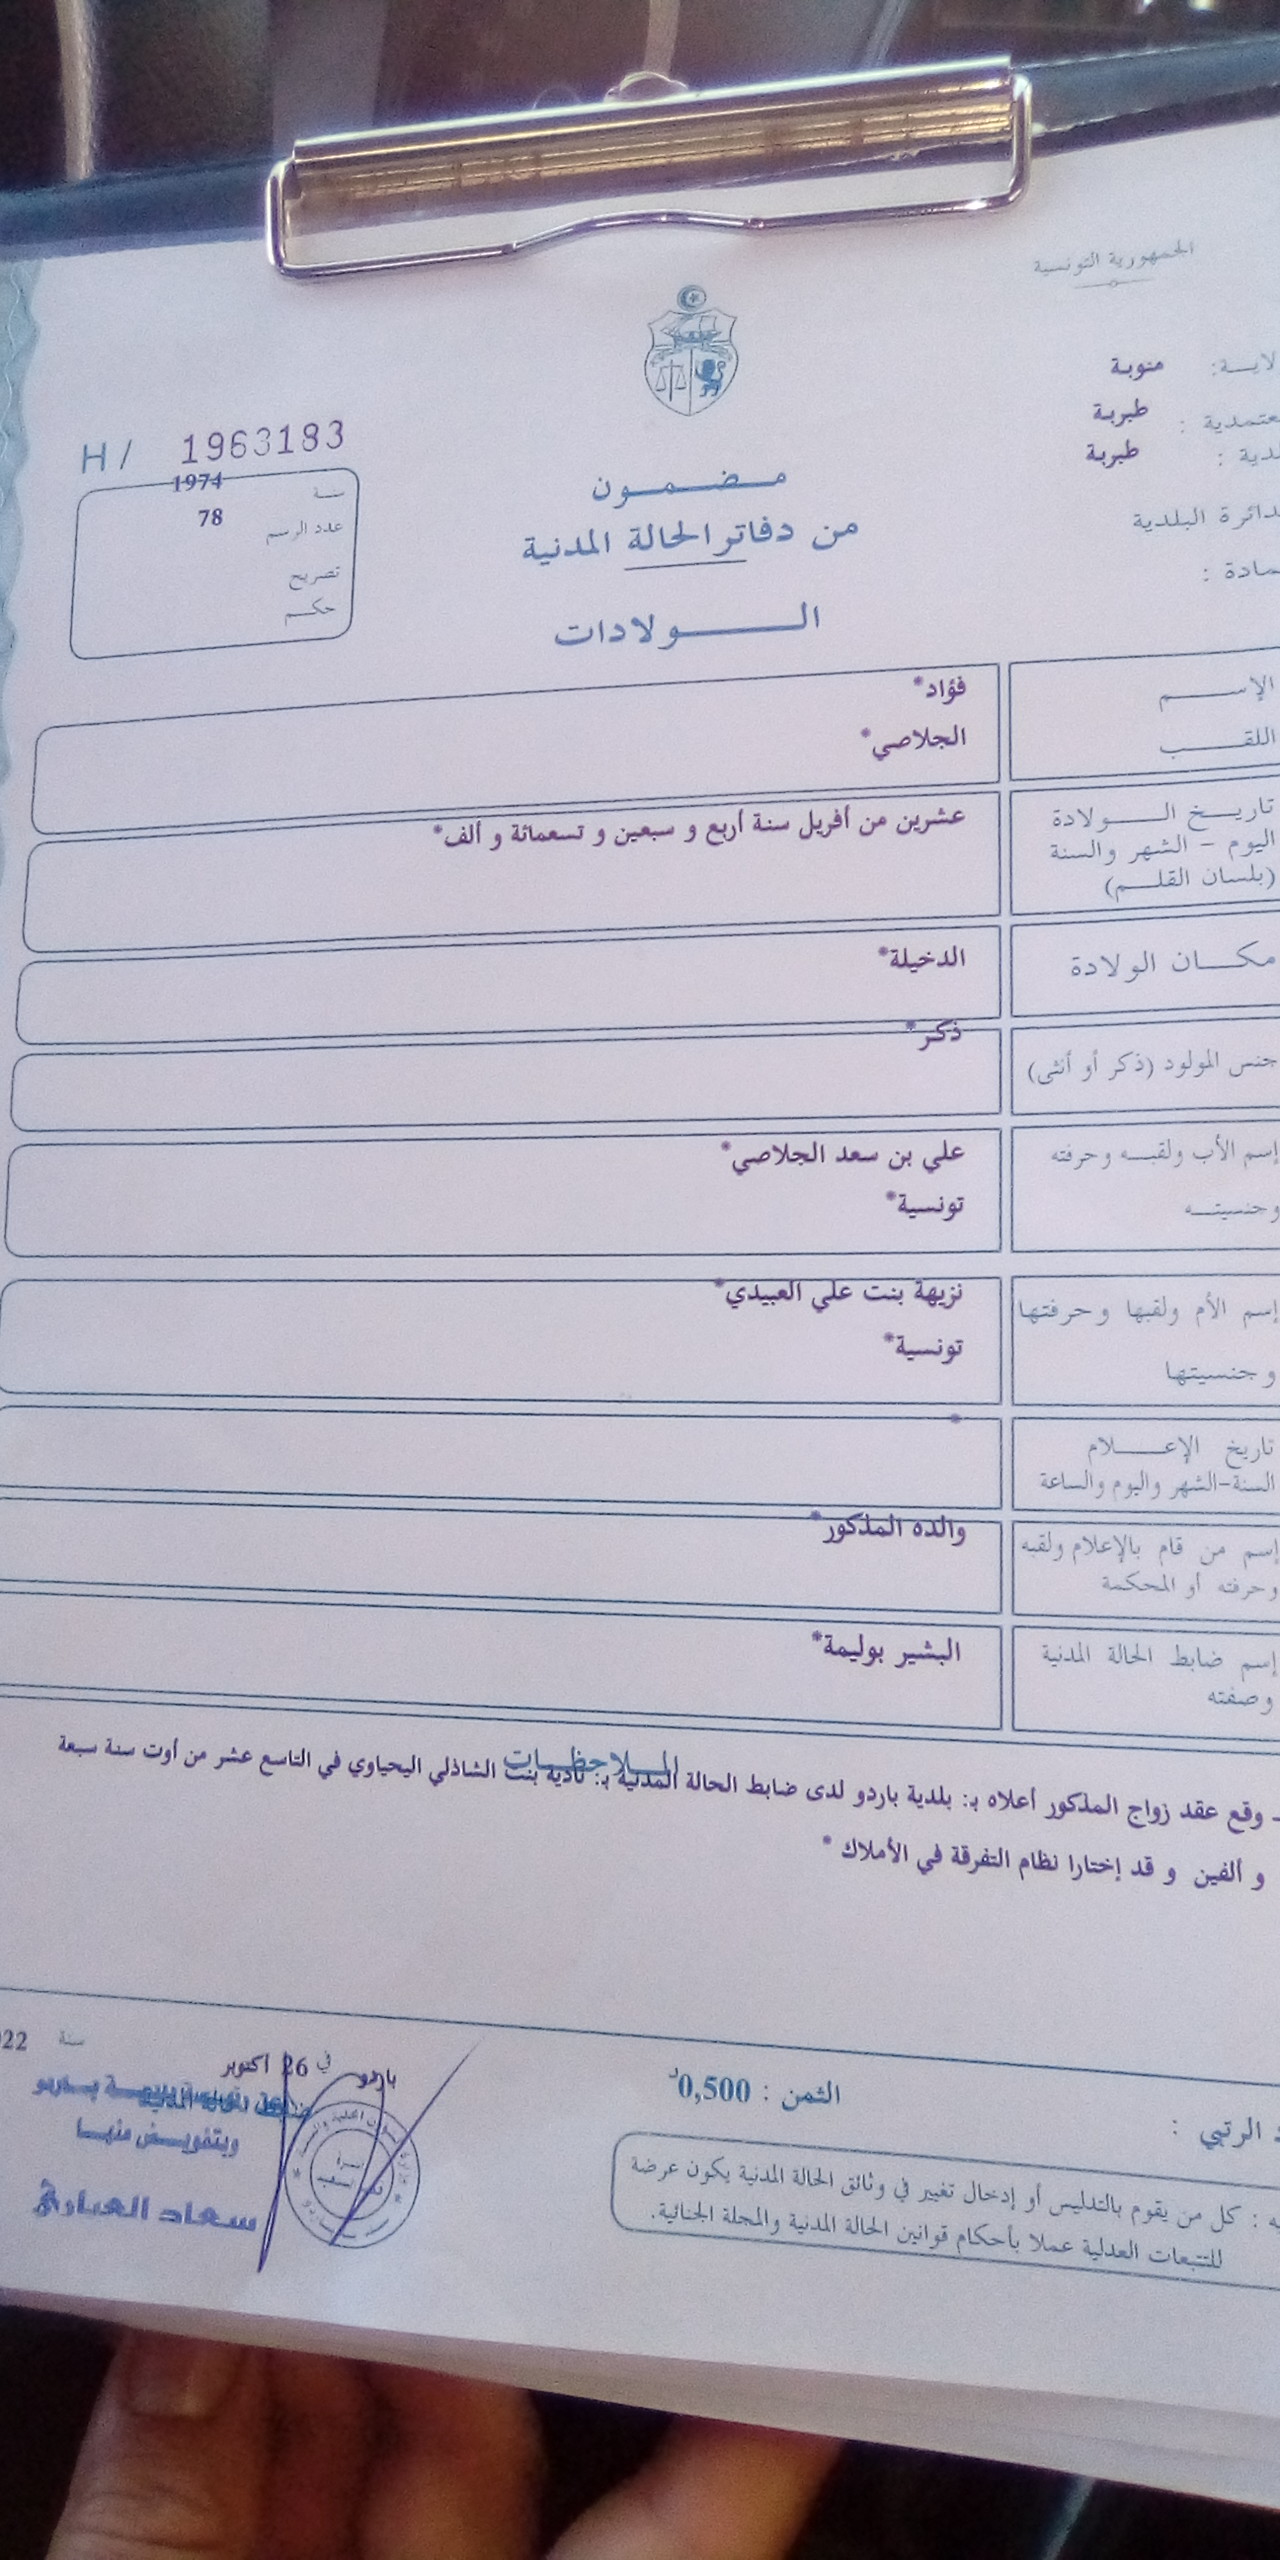 الجمهورية التونسية
منوبة
طبربة
طبربة
الدائرة البلدية
H/ 1963183
سنة 1974
عدد الرسم 78
تصريح
حكم
مضمون
من دفاتر الحالة المدنية
الولادات
الإسم فؤاد*
اللقب الجلاصي*
تاريخ الولادة
اليوم - الشهر والسنة
(بلسان القلم)
عشرين من أفريل سنة أربع و سبعين و تسعمائة و ألف*
مكان الولادة الدخيلة*
جنس المولود (ذكر أو أنثى) ذكر*
إسم الأب ولقبه وحرفته علي بن سعد الجلاصي*
وجنسيته تونسية*
إسم الأم ولقبها وحرفتها نزيهة بنت علي العبيدي*
وجنسيتها تونسية*
تاريخ الإعلام *
السنة-الشهر واليوم والساعة
إسم من قام بالإعلام ولقبه والده المذكور*
وحرفته أو المحكمة
إسم ضابط الحالة المدنية البشير بوليمة*
وصفته
الملاحظات
- وقع عقد زواج المذكور أعلاه بـ: بلدية باردو لدى ضابط الحالة المدنية بـ: نادية بنت الشاذلي اليحياوي في التاسع عشر من أوت سنة سبعة
و ألفين و قد إختارا نظام التفرقة في الأملاك *
باردو في 26 اكتوبر سنة
وبتفويض منها
سعاد العياري
الثمن : 0,500د
الرتبي :
كل من يقوم بالتدليس أو إدخال تغيير في وثائق الحالة المدنية يكون عرضة
للتتبعات العدلية عملا بأحكام قوانين الحالة المدنية والمجلة الجنائية.